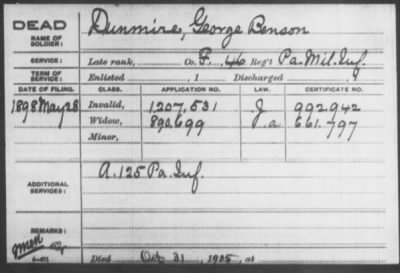 DEAD
NAME OF SOLDIER: Dunmire, George Benson
SERVICE: Late rank, Co. F, 46 Reg't Pa. Mil. Inf.
TERM OF SERVICE: Enlisted , 1 Discharged , 1
DATE OF FILING. CLASS. APPLICATION NO. LAW. CERTIFICATE NO.
1898 May 28 Invalid, 1207,531 J 992.942
Widow, 890,699 J.a 661.797
Minor,
ADDITIONAL SERVICES: A. 125 Pa. Inf.
REMARKS:
Died Oct 31 , 1905 , at